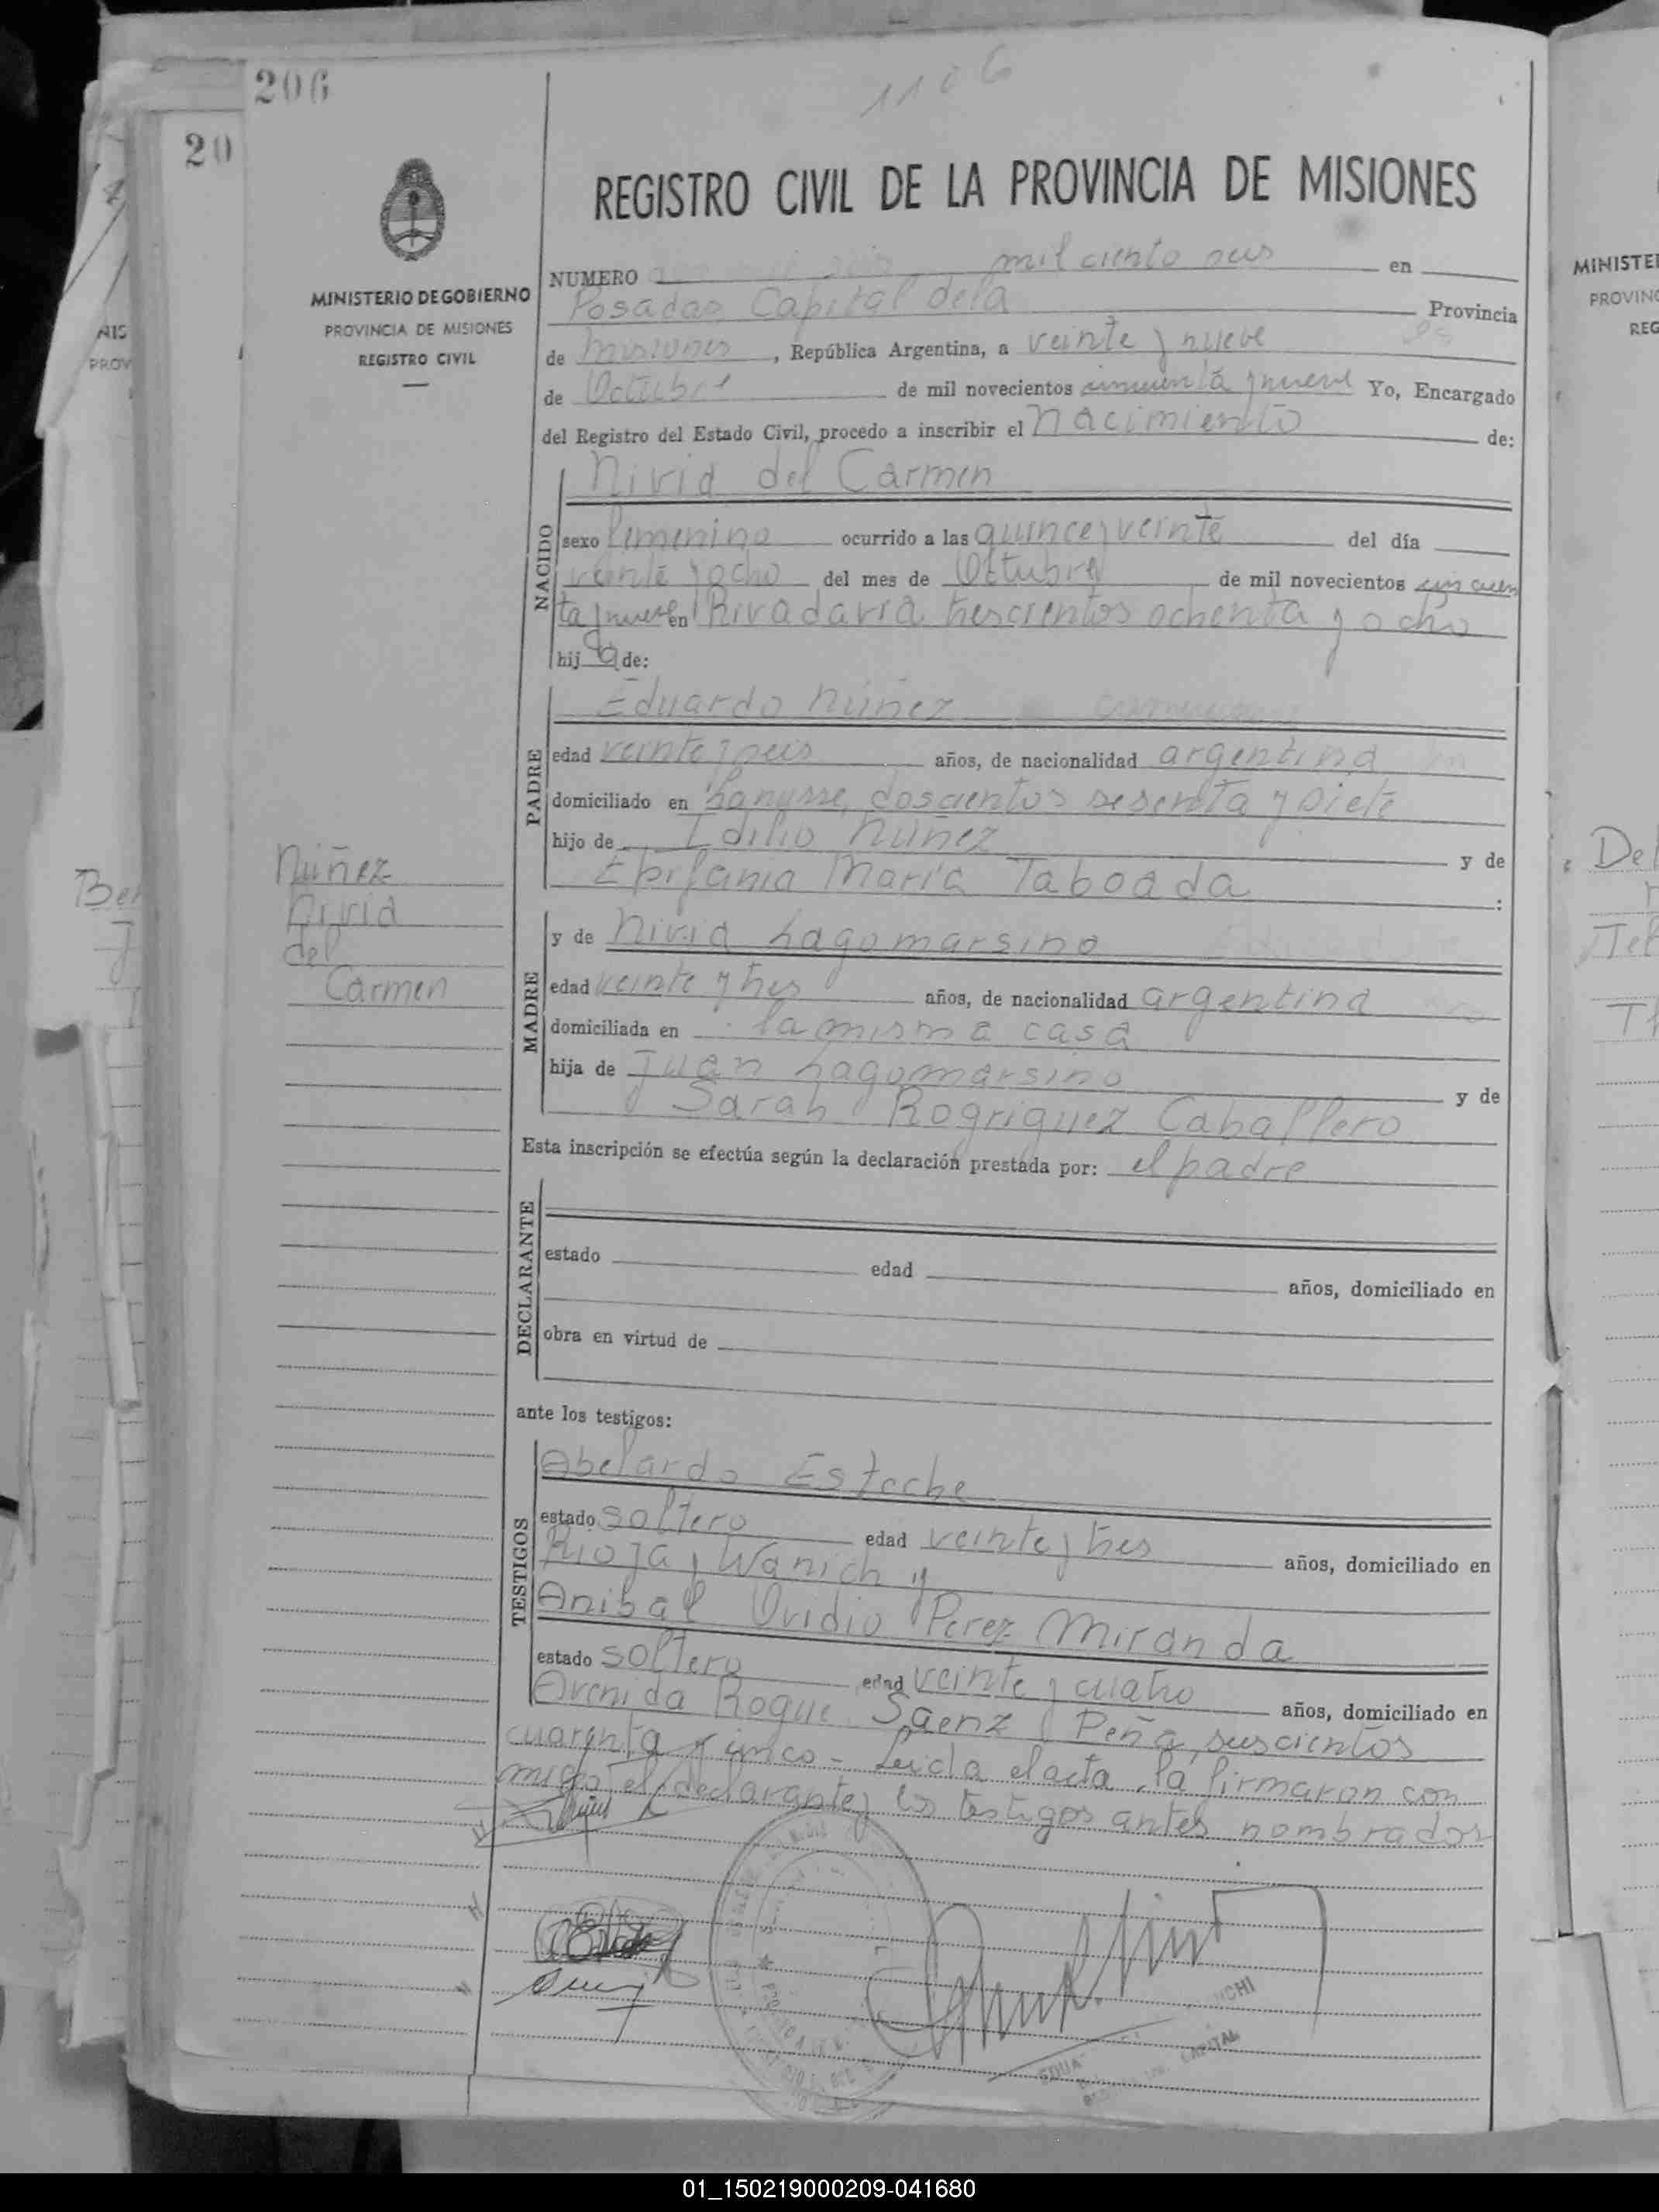 206
1106
20
REGISTRO CIVIL DE LA PROVINCIA DE MISIONES
MINISTERIO DE GOBIERNO
PROVINCIA DE MISIONES
REGISTRO CIVIL
NUMERO mil ciento seis en
Posadas Capital de la Provincia
de Misiones, República Argentina, a veinte y nueve
de Octubre de mil novecientos cincuenta y nueve Yo, Encargado
del Registro del Estado Civil, procedo a inscribir el Nacimiento de:
NACIDO
Nivia del Carmen
sexo femenino ocurrido a las quince y veinte del día
veinte y ocho del mes de Octubre de mil novecientos cincuen
ta y nueve en Rivadavia trescientos ochenta y ocho
hija de:
PADRE
Eduardo Núñez
edad veinte y seis años, de nacionalidad argentina
domiciliado en Lanusse, doscientos sesenta y siete
hijo de Idilio Núñez y de
Epifania María Taboada :
MADRE
y de Nivia Lagomarsino
edad veinte y tres años, de nacionalidad argentina
domiciliada en la misma casa
hija de Juan Lagomarsino y de
Sarah Rogriguez Caballero
Núñez
Nivia
del
Carmen
Esta inscripción se efectúa según la declaración prestada por: el padre
DECLARANTE
estado edad años, domiciliado en
obra en virtud de
ante los testigos:
TESTIGOS
Abelardo Esteche
estado soltero edad veinte y tres años, domiciliado en
Rioja y Wanich y
Anibal Ovidio Perez Miranda
estado soltero edad veinte y cuatro años, domiciliado en
Avenida Roque Saenz Peña, seiscientos
cuarenta y cinco - Leida el acta, la firmaron con
migo el declarante y los testigos antes nombrados
MINISTE
PROVIN
REG
AIS
PROV
Ber
Del
Tel
CAPITAL
01_150219000209-041680